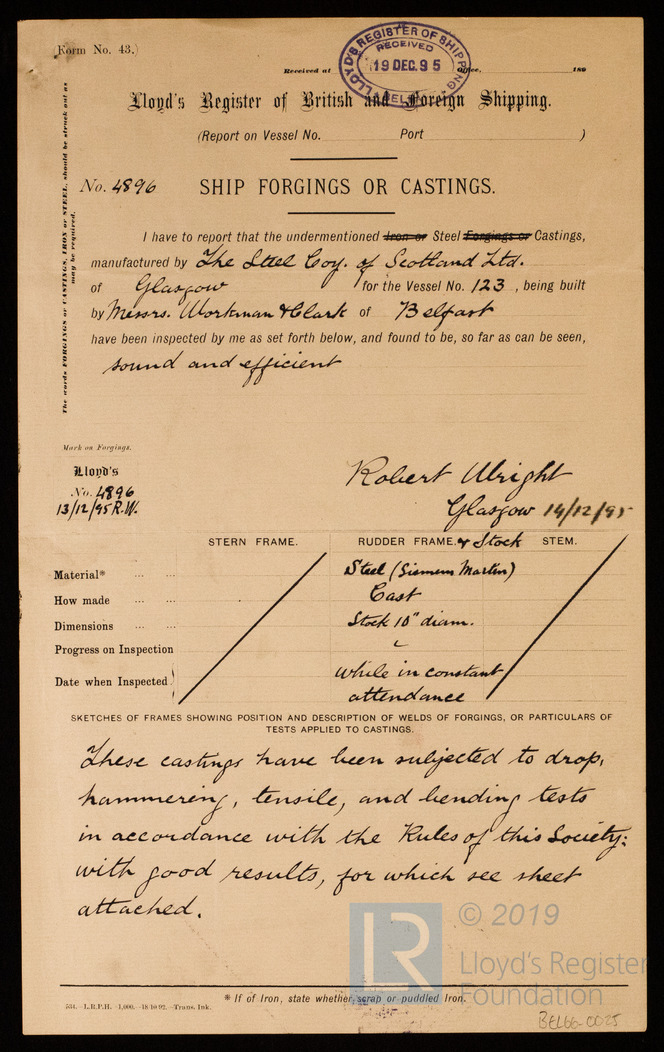 (Form No. 43.)
LLOYD'S REGISTER OF SHIPPING
RECEIVED
19 DEC. 95
BELFAST
Received at Office, 189
Lloyd's Register of British and Foreign Shipping.
(Report on Vessel No. Port )
No. 4896 SHIP FORGINGS OR CASTINGS.
The words FORGINGS or CASTINGS, IRON or STEEL, should be struck out as
may be required.
I have to report that the undermentioned Iron or Steel Forgings or Castings,
manufactured by The Steel Coy. of Scotland Ltd.
of Glasgow for the Vessel No. 123, being built
by Messrs. Workman & Clark of Belfast
have been inspected by me as set forth below, and found to be, so far as can be seen,
sound and efficient
Mark on Forgings.
Lloyd's
No. 4896
13/12/95 R.W.
Robert Wright
Glasgow 14/12/95
STERN FRAME. RUDDER FRAME. & Stock STEM.
Material* ... ... Steel (Siemens Martin)
How made ... ... Cast
Dimensions ... ... Stock 10" diam.
Progress on Inspection
Date when Inspected while in constant
attendance
SKETCHES OF FRAMES SHOWING POSITION AND DESCRIPTION OF WELDS OF FORGINGS, OR PARTICULARS OF
TESTS APPLIED TO CASTINGS.
These castings have been subjected to drop,
hammering, tensile, and bending tests
in accordance with the Rules of this Society:
with good results, for which see sheet
attached.
LR © 2019
Lloyd's Register
Foundation
* If of Iron, state whether scrap or puddled Iron.
534.—L.R.P.H.—1,000.—18/10/92.—Trans. Ink.
BEL66-0025